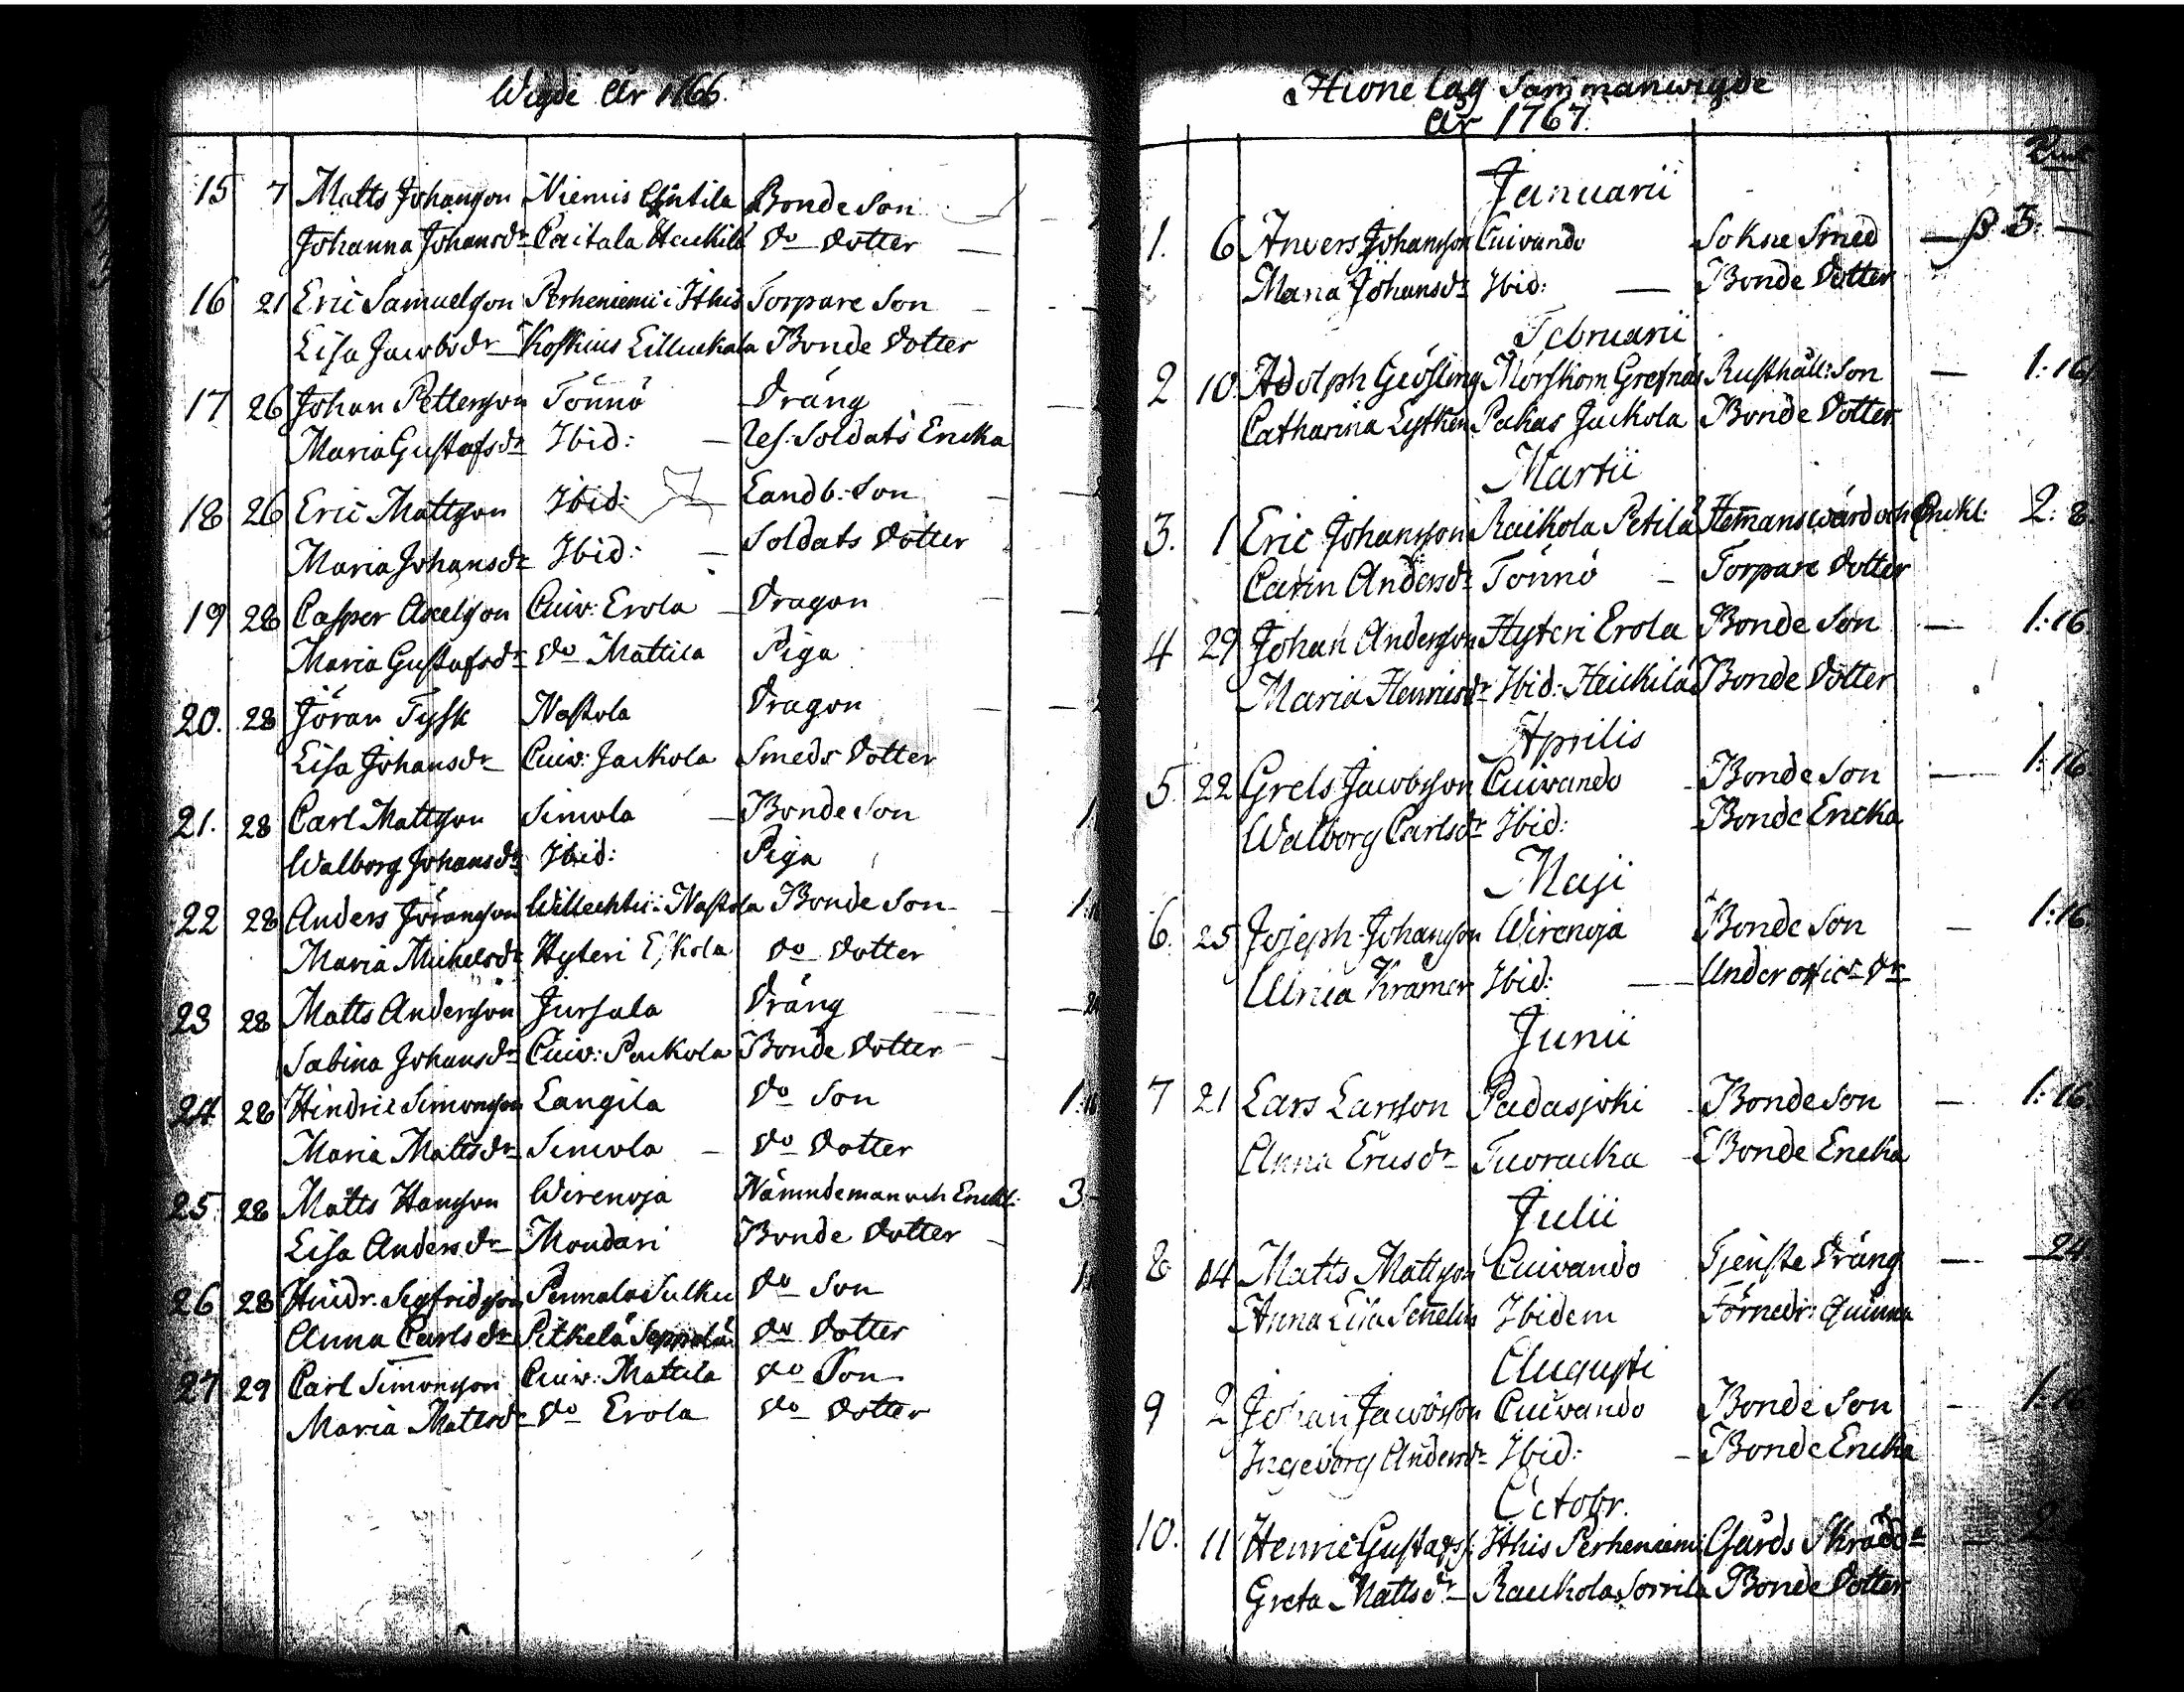 Wigde År 1766.
15 7 Matts Johansson Niemis Bonde Son
Johanna Johansdr Caitala Heickilä do dotter
16 21 Eric Samuelsson Perheniemi i Ithis Torpare Son
Lisa Jacobsdr Koskius Lilluckala Bonde dotter
17 26 Johan Pettersson Tönnö Dräng
Maria Gustafsdr Ibid: Ref: Soldats Encka
18 26 Eric Mattsson Ibid: Landb: Son
Maria Johansdr Ibid: Soldats dotter
19 28 Casper Axelsson Cuiv: Erola Dragon
Maria Gustafsdr do Mattila Piga
20. 28 Jöran Tysk Nastola Dragon
Lisa Johansdr Cuiv: Jackola Smeds dotter
21. 28 Carl Mattsson Simola Bonde Son 1
Walborg Johansdr Ibid: Piga
22 28 Anders Jöransson Willechti i Nastola Bonde Son 1:
Maria Michelsdr Hyteri Eskola do dotter
23 28 Matts Andersson Jursala Dräng
Sabina Johansdr Cuiv: Packola Bonde dotter
24 28 Hindric Simonsson Langila do Son 1:
Maria Mattsdr Simola do dotter
25. 28 Matts Hansson Wirenoja Nämndeman och Enckl: 3
Lisa Andersdr Mondari Bonde dotter
26 28 Hindr: Segfridsson Pennala Sulku do Son 1
Anna Carlsdr Pitkelä Seppälä do dotter
27 29 Carl Simonsson Cuiv: Mattila do Son
Maria Matsdr do Erola do dotter
Hionelag Sammanwigde
År 1767.
Januarii
1. 6 Anders Johansson Cuivando Sokne Smed 3:
Maria Johansdr Ibid: Bonde dotter
Februarii
2 10. Adolph Geösling Mörskom Grefnäs Rusthåll: Son 1:16
Catharina Lythen Pakas Jackola Bonde Dotter
Martii
3. 1 Eric Johansson Raikola Petilä Hemmanswärd och Enckl: 2:8.
Carin Andersdr Tönnö Torpare dotter
4 29 Johan Andersson Hyteri Erola Bonde Son 1:16.
Maria Henricsdr Ibid: Heickilä Bonde Dotter
Aprilis
5. 22 Grels Jacobsson Cuivando Bonde Son 1:16.
Walborg Carlsdr Ibid: Bonde Encka
Maji
6. 25 Joseph Johansson Wirenoja Bonde Son 1:16.
Ulrica Kramer Ibid: Underofic: dr
Junii
7 21 Lars Larsson Padasjoki Bonde Son 1:16.
Anna Ericsdr Tuoracka Bonde Encka
Julii
8 14 Matts Mattsson Cuivando Tjenste Dräng 24.
Anna Lisa Senelin Ibidem Förnedr: Quinna
Augusti
9 2 Johan Jacobsson Cuivando Bonde Son 1:16
Ingeborg Andersdr Ibid: Bonde Encka
Octobr.
10. 11 Henric Gustafss: Ithis Perheniemi Gårds Skrädd: 2
Greta Mattsdr Rauhola Sorrila Bonde Dotter